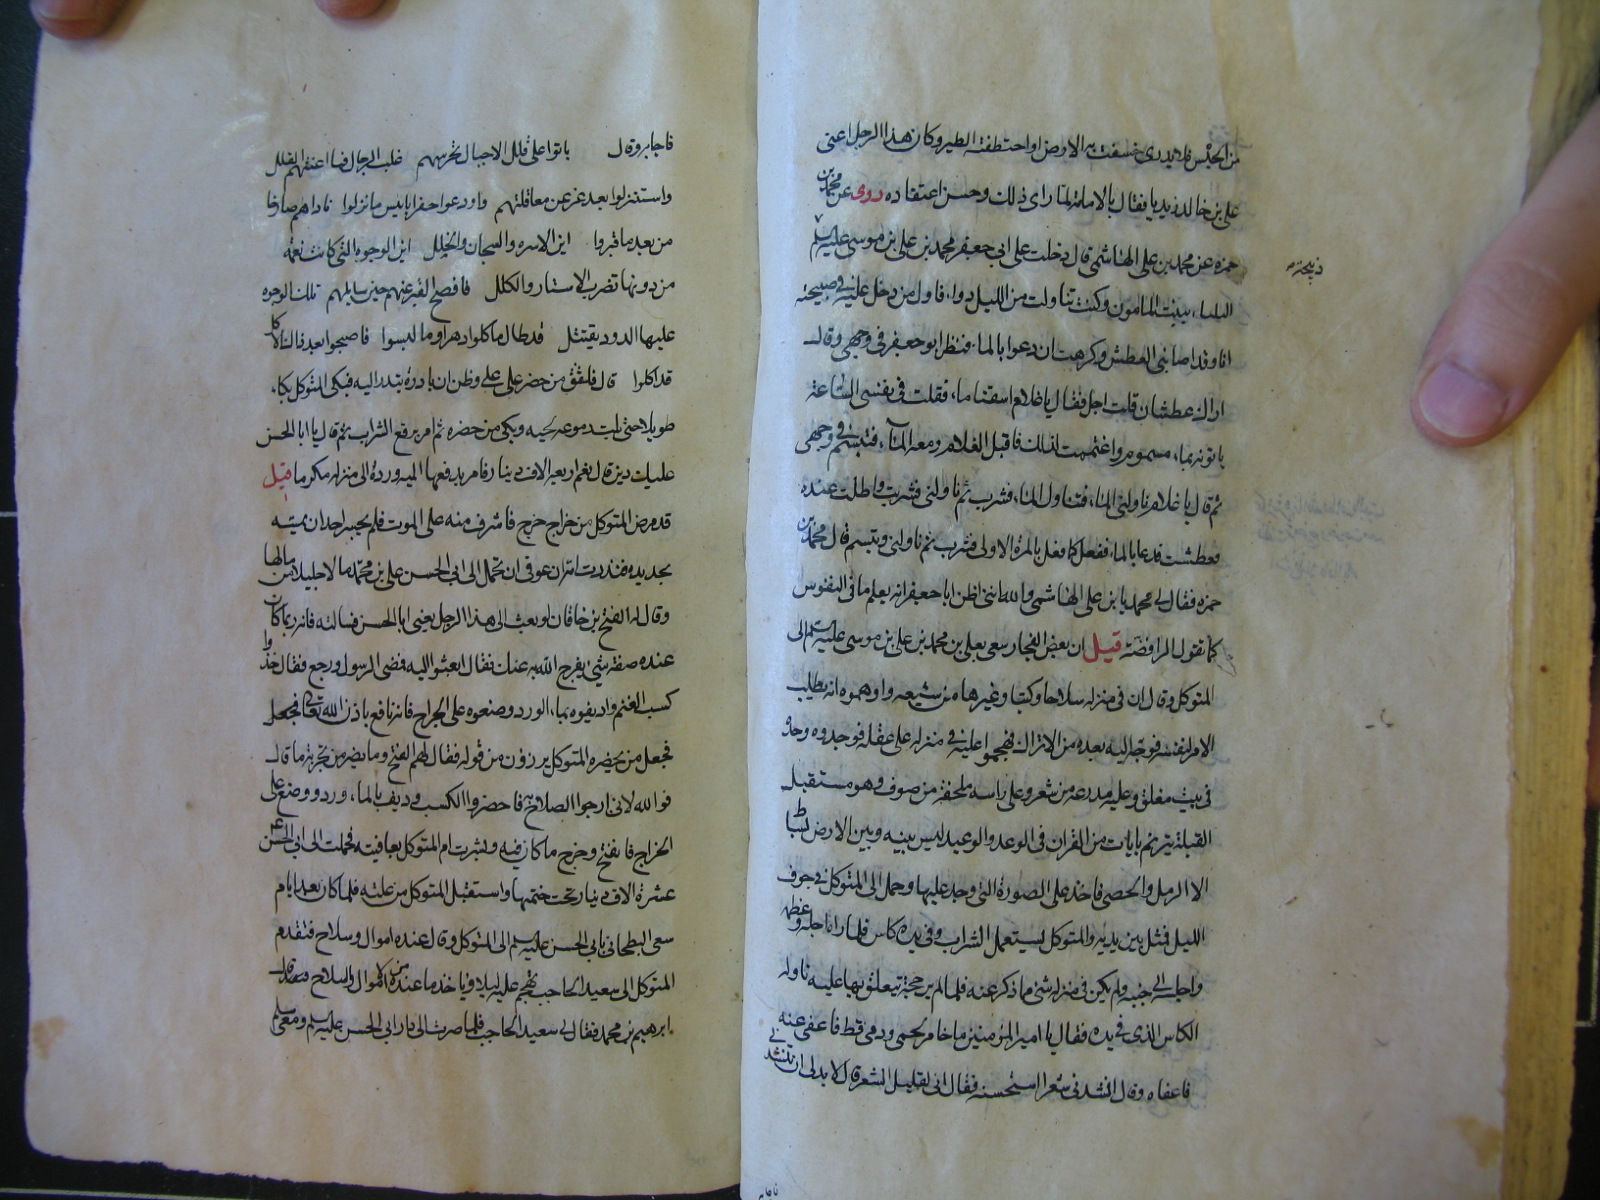 من الحبس فلا يدرى خسفت به الارض او اختطفته الطير وكان هذا الرجل اعنى
على بن خالد زيديا فقال بالامامة لما راى ذلك وحسن اعتقاده روى عن محمد بن
حمزه عن محمد بن على الهاشمى قال دخلت على ابى جعفر محمد بن على بن موسى عليهم
ببنت المامون وكنت تناولت من الليل دواء فاول من دخل عليه فى صبيحته
انا وقد اصابنى العطش وكرهت ان دعوا بالماء فنظر ابو جعفر فى وجهى وقال
اراك عطشان قلت اجل فقال يا غلام اسقنا ماء فقلت فى نفسى الساعة
ياتونه بماء مسموم واغتممت لذلك فاقبل الغلام ومعه الماء فتبسم فى وجهى
ثم قال يا غلام ناولنى الماء فتناول الماء فشرب ثم ناولنى فشربت واطلت عنده
فعطشت فدعا بالماء ففعل كما فعل بالمرة الاولى فشرب ثم ناولنى وتبسم قال محمد بن
حمزه فقال لى محمد يا بن على الهاشمى والله اننى اظن ابا جعفر انه يعلم ما فى النفوس
كما تقول الرافضة قيل ان بعض الفجار سعى بعلى بن محمد بن على بن موسى عليه سلم الى
المتوكل وقال ان فى منزله سلاحا وكتبا وغيرها من شيعه واوهموه انه يطلب
الامر لنفسه فوجه اليه بعده من الاتراك فهجموا عليه فى منزله على غفله فوجدوه وحده
فى بيت مغلق وعليه مدرعة من شعر وعلى راسه ملحفه من صوف وهو مستقبل
القبلة يترنم بايات من القران فى الوعد والوعيد ليس بينه وبين الارض بساط
الا الرمل والحصى فاخذ على الصورة التى وجد عليها وحمل الى المتوكل فى جوف
الليل فمثل بين يديه والمتوكل يستعمل الشراب وفى يده كاس فلما راه اجله وعظمه
واجلسه الى جنبه ولم يكن فى منزله شئ مما ذكر عنه فلما لم ير حجة يتعلق بها عليه ناوله
الكاس الذى فى يده فقال يا امير المومنين ما خامر لحمى ودمى قط فاعفنى عنه
فاعفاه وقال انشدنى شعرا استحسنه فقال انى لقليل الشعر قال لا بد لى ان تنشدنى
فاجابه وقال باتوا على قلل الاجبال تحرسهم غلب الرجال فما اغنتهم القلل
واستنزلوا بعد عز عن معاقلهم واودعوا حفرا يا بئس ما نزلوا ناداهم صارخا
من بعد ما قبروا اين الاسره والتيجان والحلل اين الوجوه التى كانت نعمة
من دونها تضرب الاستار والكلل فافصح القبر عنهم حين سايلهم تلك الوجوه
عليها الدود يقتتل قد طال ما اكلوا دهرا وما لبسوا فاصبحوا بعد ذاك الاكل
قد اكلوا قال فاشفق من حضر على على وظن ان بادرة تبتدر اليه فبكى المتوكل بكاء
طويلا حتى بلت دموعه لحيته وبكى من حضره ثم امر برفع الشراب ثم قال يا ابا الحسن
عليك دين قال نعم اربعة الاف دينار فامر بدفعها اليه ورده الى منزله مكرما قيل
قد مرض المتوكل من خراج خرج فاشرف منه على الموت فلم يجسر احد ان يمسه
بحديده فنذرت امه ان عوفى ان تحمل الى ابى الحسن على بن محمد مالا جليلا من مالها
وقال له الفتح بن خاقان لو بعث الى هذا الرجل يعنى ابا الحسن فسالته فانه ربما كان
عنده صفة شئ يفرج الله به عنك فقال ابعثوا اليه فمضى الرسول ورجع فقال خذوا
كسب الغنم واديفوه بماء الورد وضعوه على الخراج فانه نافع باذن الله تعالى فجعل
فجعل من يحضره المتوكل يهزؤن من قوله فقال لهم الفتح وما يضر من تجربة ما قال
فوالله لانى ارجوا الصلاح فاحضروا الكسب وديف بالماء ورد ووضع على
الخراج فانفتح وخرج ما كان فيه وبشرت ام المتوكل بعافيته فحملت الى ابى الحسن
عشرة الاف دينار تحت ختمها واستقبل المتوكل من علته فلما كان بعد ايام
سعى البطحانى بابى الحسن عليه سلم الى المتوكل وقال عنده اموال وسلاح فتقدم
المتوكل الى سعيد الحاجب تهجم عليه ليلا وياخذ ما عنده من الاموال والسلاح قال
ابرهيم بن محمد فقال لى سعيد الحاجب فلما صرت الى دار ابى الحسن عليه سلم ومعى سلم